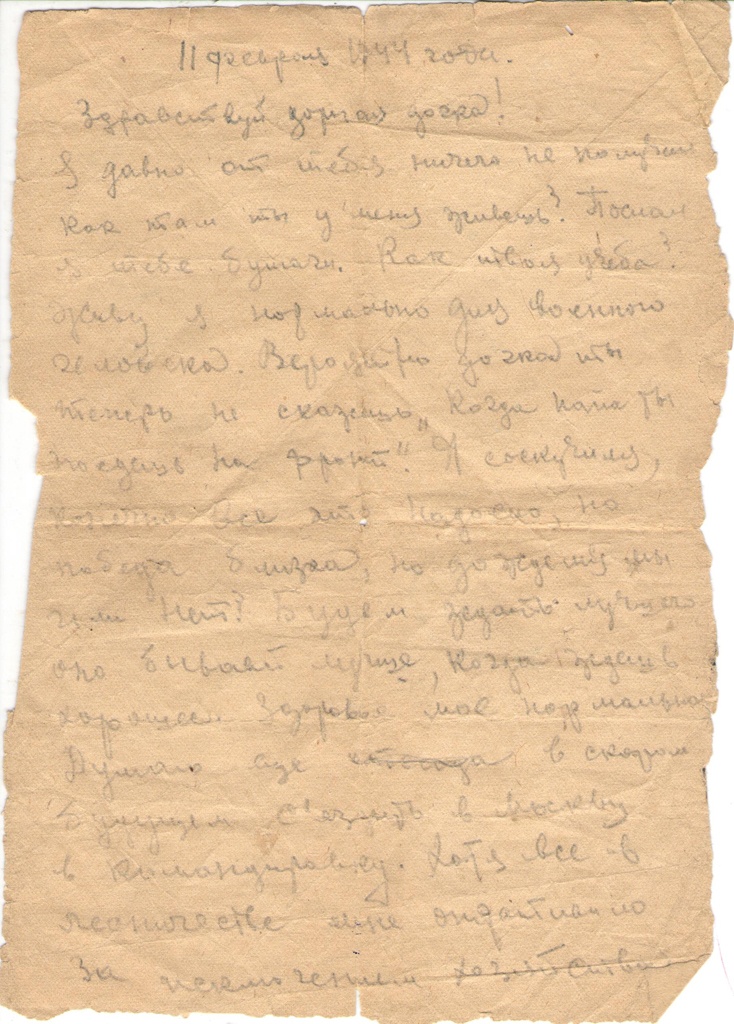 11 февраля 1944 года.
Здравствуй дорогая дочка!
Я давно от тебя ничего не получал
как там ты у меня живешь? Послал
я тебе бумаги. Как твоя учеба?
Живу я нормально для военного
человека. Вероятно дочка ты
теперь не скажешь „Когда папа ты
поедешь на фронт“. Я соскучился,
конечно все это надоело, но
победа близка, но дождемся мы
или нет? Будем ждать лучшего
оно бывает лучше, когда ждешь
хорошее. Здоровье мое нормально
Думаю еще в скором
будущем съездить в Москву
в командировку. Хотя все в
лесничестве мне
За исключением хозяйства